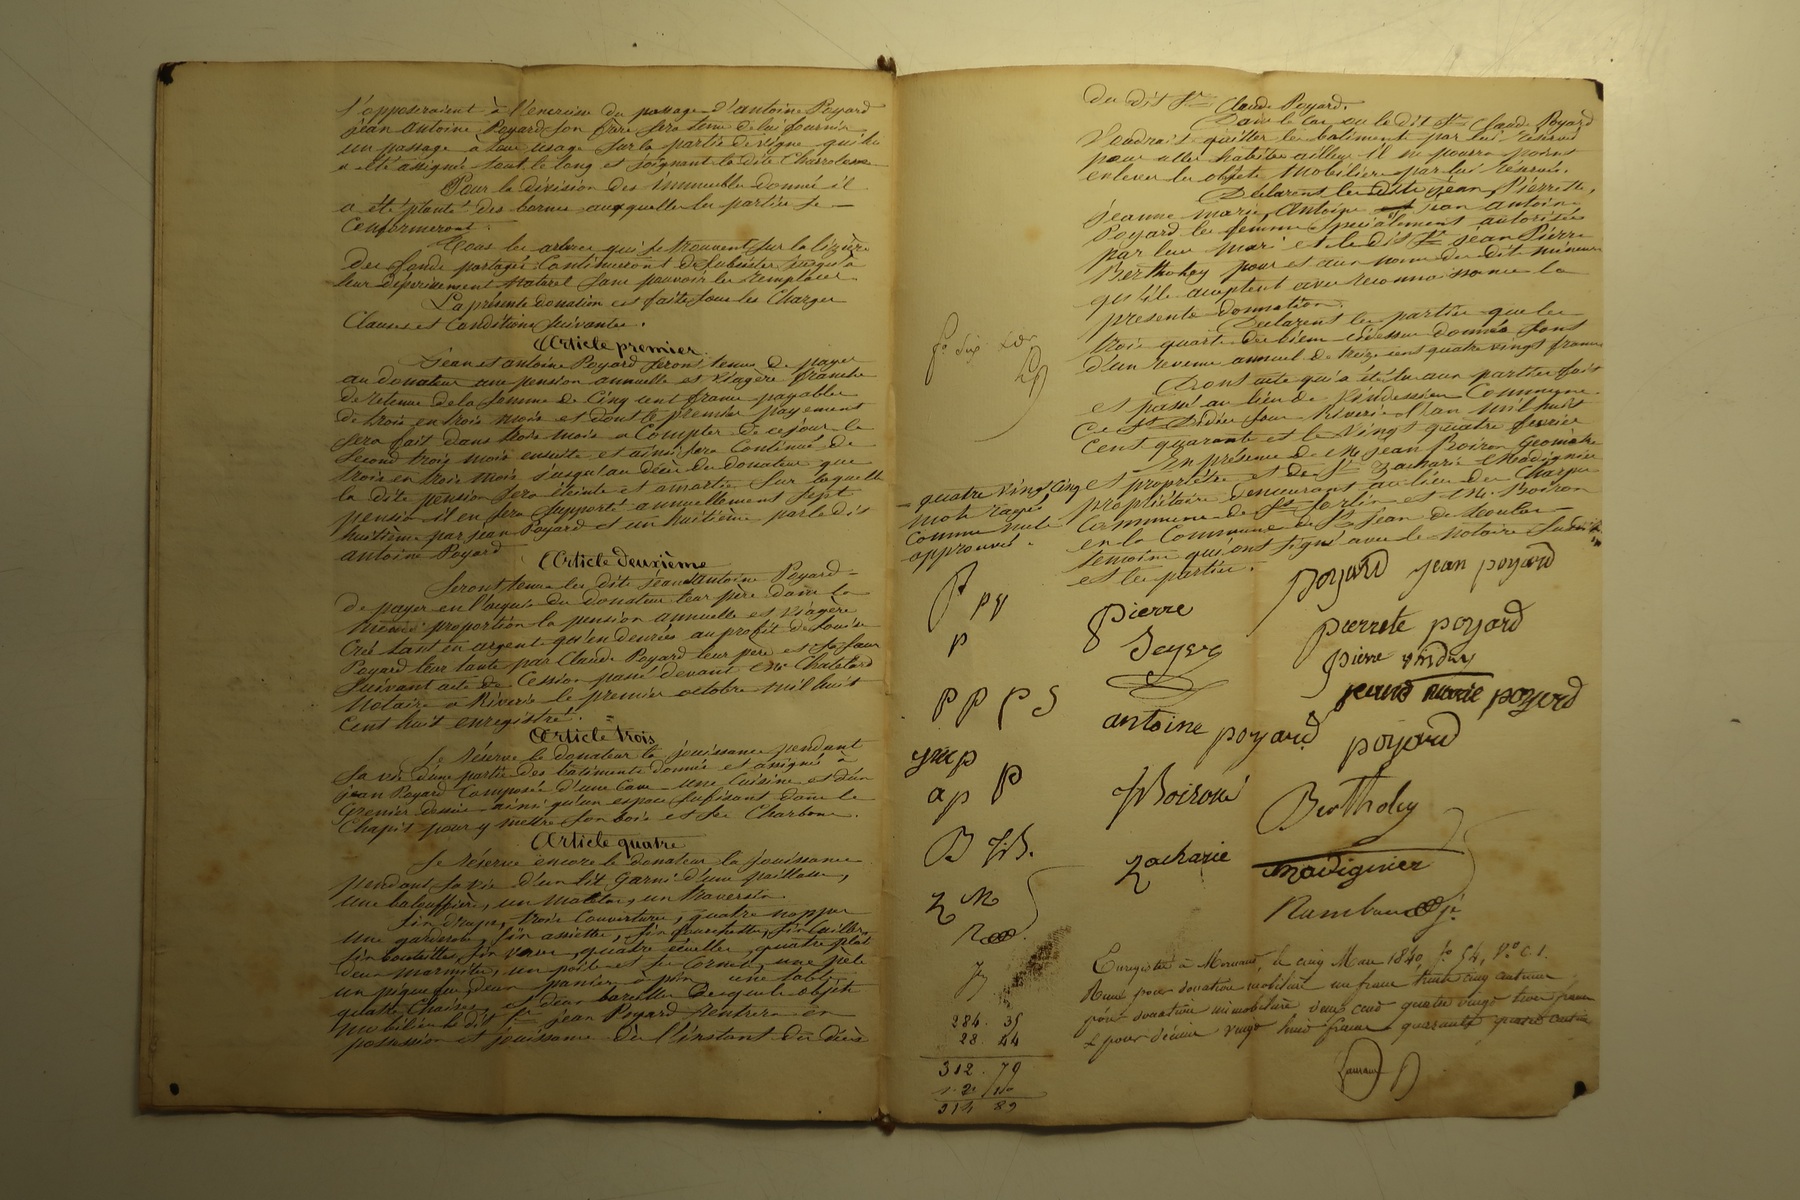 s'opposeraient à l'exercice du passage d'antoine Poyard
jean antoine Poyard son frère sera tenu de lui fournir
un passage à leur usage sur la partie de vigne qui lui
a été assignée tout le long et joignant la dite
Pour la division des immeubles donnés il
a été planté des bornes auxquelles les parties se
conformeront.
Tous les arbres qui se trouvent sur la lizière
des fonds partagés continueront de subsister jusqu'à
leur dépérissement naturel sans pouvoir les remplacer
La présente donation est faite sous les charges
Clauses et conditions suivantes.
Article premier
Jean et antoine Poyard seront tenus de payer
au donateur une pension annuelle et viagère franche
de retenue de la somme de cinq cent francs payable
de trois en trois mois et dont le premier payement
sera fait dans trois mois a compter de ce jour le
second trois mois ensuite et ainsi sera continué de
trois en trois mois jusqu'au décès du donateur que
la dite pension sera éteinte et amortie sur laquelle
pension il en sera supporté annuellement sept
huitième par jean Poyard et un huitième par le dit
antoine Poyard
Article deuxième
Seront tenus les dits jean et antoine Poyard
de payer en l'acquit du donateur leur père dans la
même proportion la pension annuelle et viagère
créé tant en argent qu'en denrées au profit de Louise
Poyard leur tante par Claude Poyard leur père et sa soeur
suivant acte de cession passé devant Me Chatelard
Notaire a Riverie le premier octobre mil huit
cent huit enregistré.
Article trois
Se réserve le donateur la jouissance pendant
sa vie d'une partie des batiments donnés et assignés à
jean Poyard composée d'une cave une cuisine et d'un
grenier dessus ainsi qu'un espace suffisant dans le
chapit pour y mettre son bois et ses charbons.
Article quatre
Se réserve encore le donateur la jouissance
pendant sa vie d'un lit garni d'une paillasse,
une balouffière, un matelas, un traversin
six draps, trois couvertures, quatre nappes
une garderobe, six assiettes, six fourchettes, six cuillers
six bouteilles, six verres, quatre écuelles, quatre plats
deux marmites, un poële et ses cornets, une pèle
un piquefeu, deux paniers à pain une table
quatre chaises, et deux barelles Desquels objets
mobiliers le dit Sr jean Poyard rentrera en
possession et jouissance dès l'instant du décès
du dit Sr Claude Poyard.
Dans le cas ou le dit Sr Claude Poyard
Voudrait quitter les batiments par lui réservés
pour aller habiter ailleurs il ne pourra point
enlever les objets mobiliers par lui réservés.
Déclarent les dits jean, Pierrette,
jeanne marie, Antoine et jean antoine
Poyard les femmes spécialement autorisées
par leur mari et le dit Sr jean Pierre
Bertholey pour et au nom du dit mineur
qu'ils acceptent avec reconnaissance la
présente donation.
Déclarent les parties que les
trois quarts des biens cidessus donnés sont
d'un revenu annuel de treize cent quatre vingt francs
Dont acte qui a été lu aux parties fait
et passé au lieu de Vindessieu commune
de St Didier sous Riverie l'an mil huit
cent quarante et le vingt quatre février
En présence de Mr Jean Boiron géomètre
et propriétaire et de Sr Zacharie Madignier
propriétaire demeurant au lieu des Charpus
commune de St Sorlin et Mr Boiron
en la commune de St jean de
temoins qui ont signé avec le Notaire
et les parties.
quatre vingt cinq
mots rayés
comme nuls
approuvés.
P py
p
P P P S
jmp
ap P
B JB.
Z M
R
284. 35
28. 44
312. 79
314 89
Pierre
Seyve
Poyard jean poyard
pierrete poyard
pierre
jeane marie poyard
antoine poyard poyard
Boiron
Bertholey
Zacharie
Madignier
Enregistré à Mornant, le cinq Mars 1840, fo 54, Vo C. 1.
Reçu pour donation mobilière un franc trente cinq centimes
pour donation immobilière deux cent quatre vingt trois francs
& pour décime vingt huit francs quarante quatre centimes